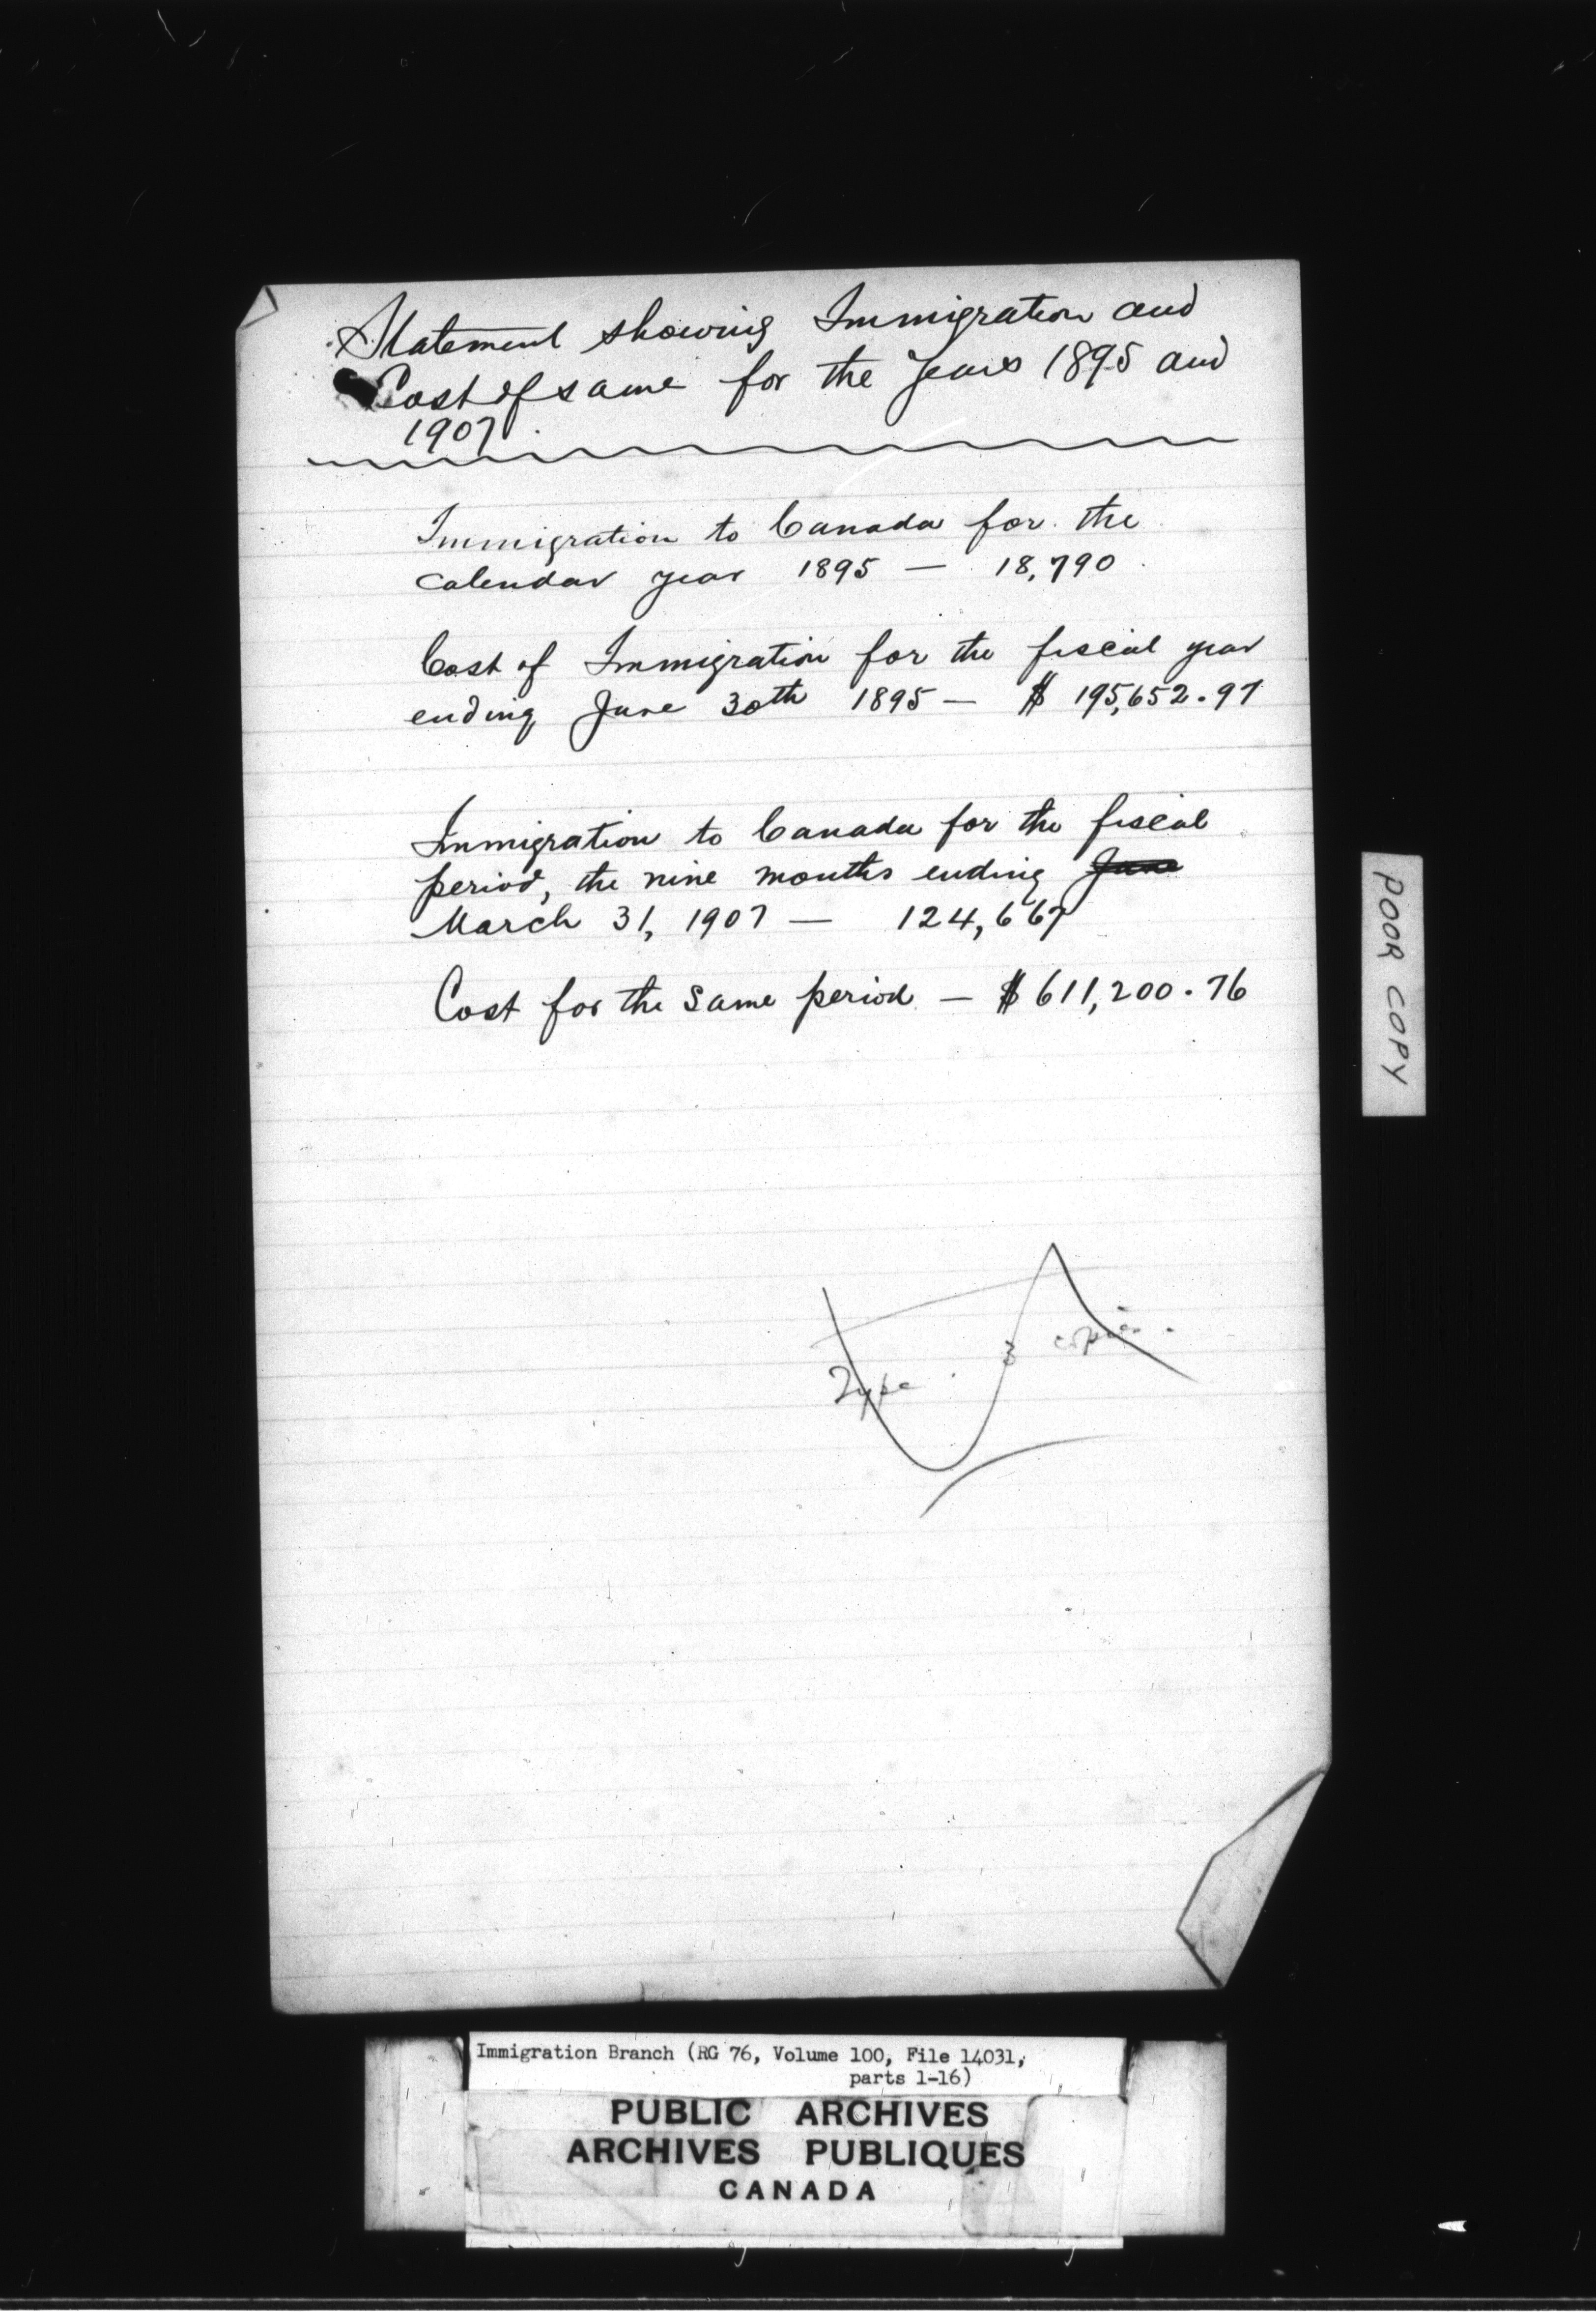 Statement showing Immigration and
Cost of same for the years 1895 and
1907.
Immigration to Canada for the
calendar year 1895 — 18,790.
Cost of Immigration for the fiscal year
ending June 30th 1895 — $ 195,652.97
Immigration to Canada for the fiscal
period, the nine months ending June
March 31, 1907 — 124,667
Cost for the same period — $ 611,200.76
Type 3 copies.
POOR COPY
Immigration Branch (RG 76, Volume 100, File 14031,
parts 1-16)
PUBLIC ARCHIVES
ARCHIVES PUBLIQUES
CANADA